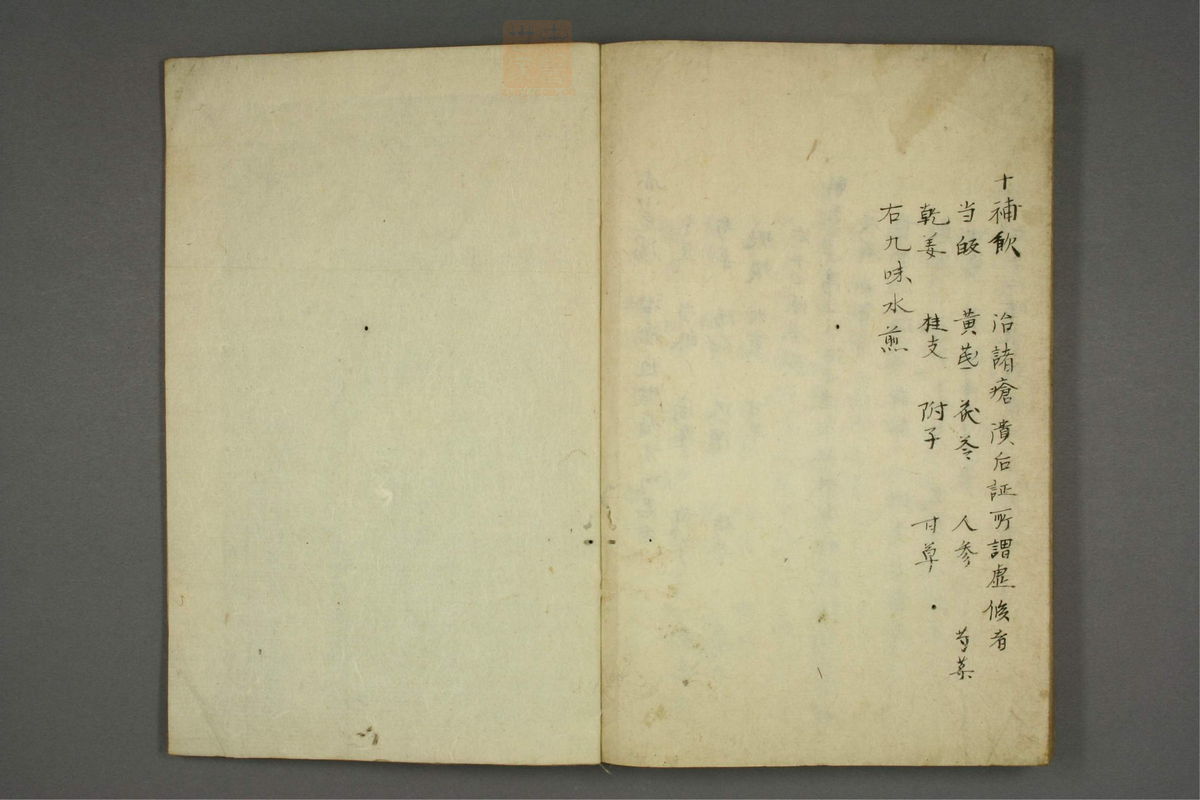 十補飲　治諸瘡潰后証所謂虚候者
当皈　黄芪　茯苓　人参　芍薬
乾姜　桂支　附子　甘草
右九味水煎